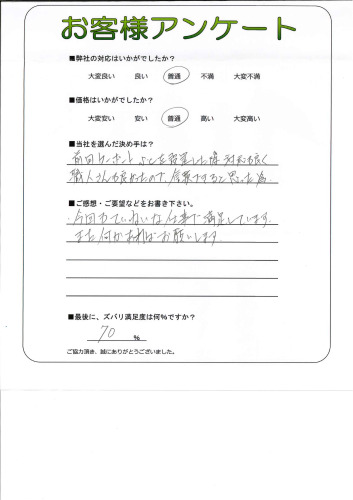 お客様アンケート
■弊社の対応はいかがでしたか?
大変良い 良い 普通 不満 大変不満
■価格はいかがでしたか?
大変安い 安い 普通 高い 大変高い
■当社を選んだ決め手は?
前回 を した 対応も良く
職人さんも良かったので、 と思った為
■ご感想・ご要望などをお書き下さい。
今回もていねいな仕事で満足しています。
また何かあればお願いします
■最後に、ズバリ満足度は何%ですか?
70 %
ご協力頂き、誠にありがとうございました。